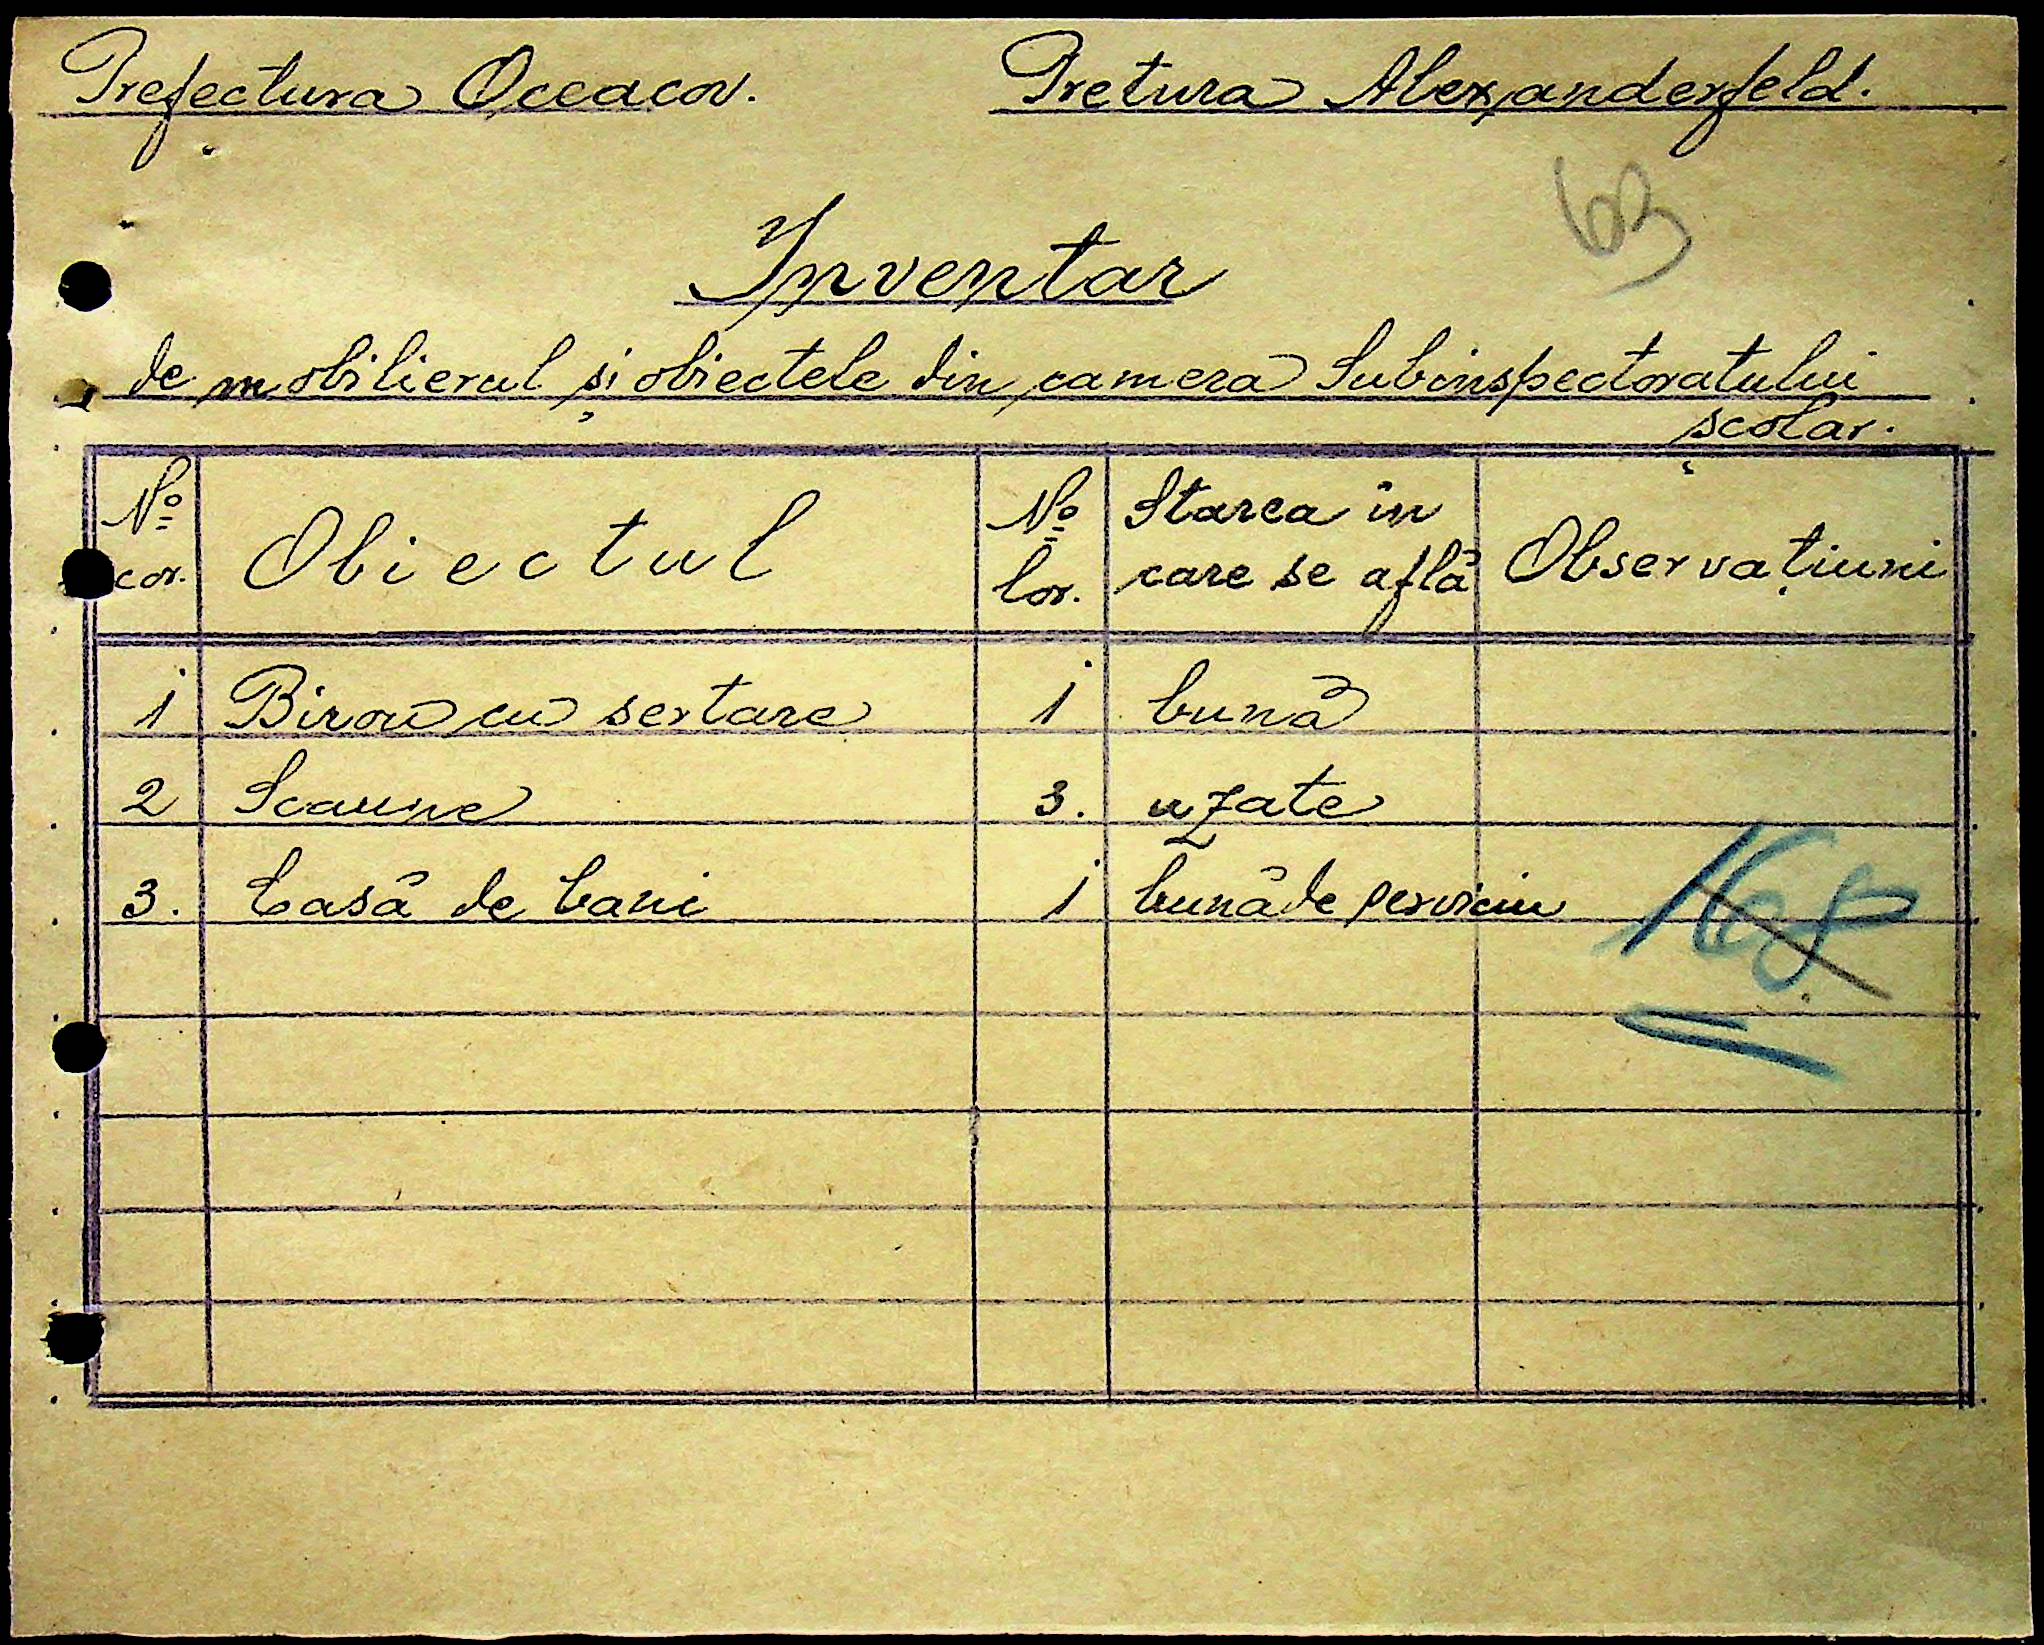 Prefectura Oceacov. Pretura Alexanderfeld.
63
Inventar
de mobilierul și obiectele din camera Subinspectoratului
școlar.
№ cor. Obiectul № lor. Starea în care se află Observațiuni
1 Birou cu sertare 1 bună
2 Scaune 3. uzate
3. Casă de bani 1 bună de serviciu
168